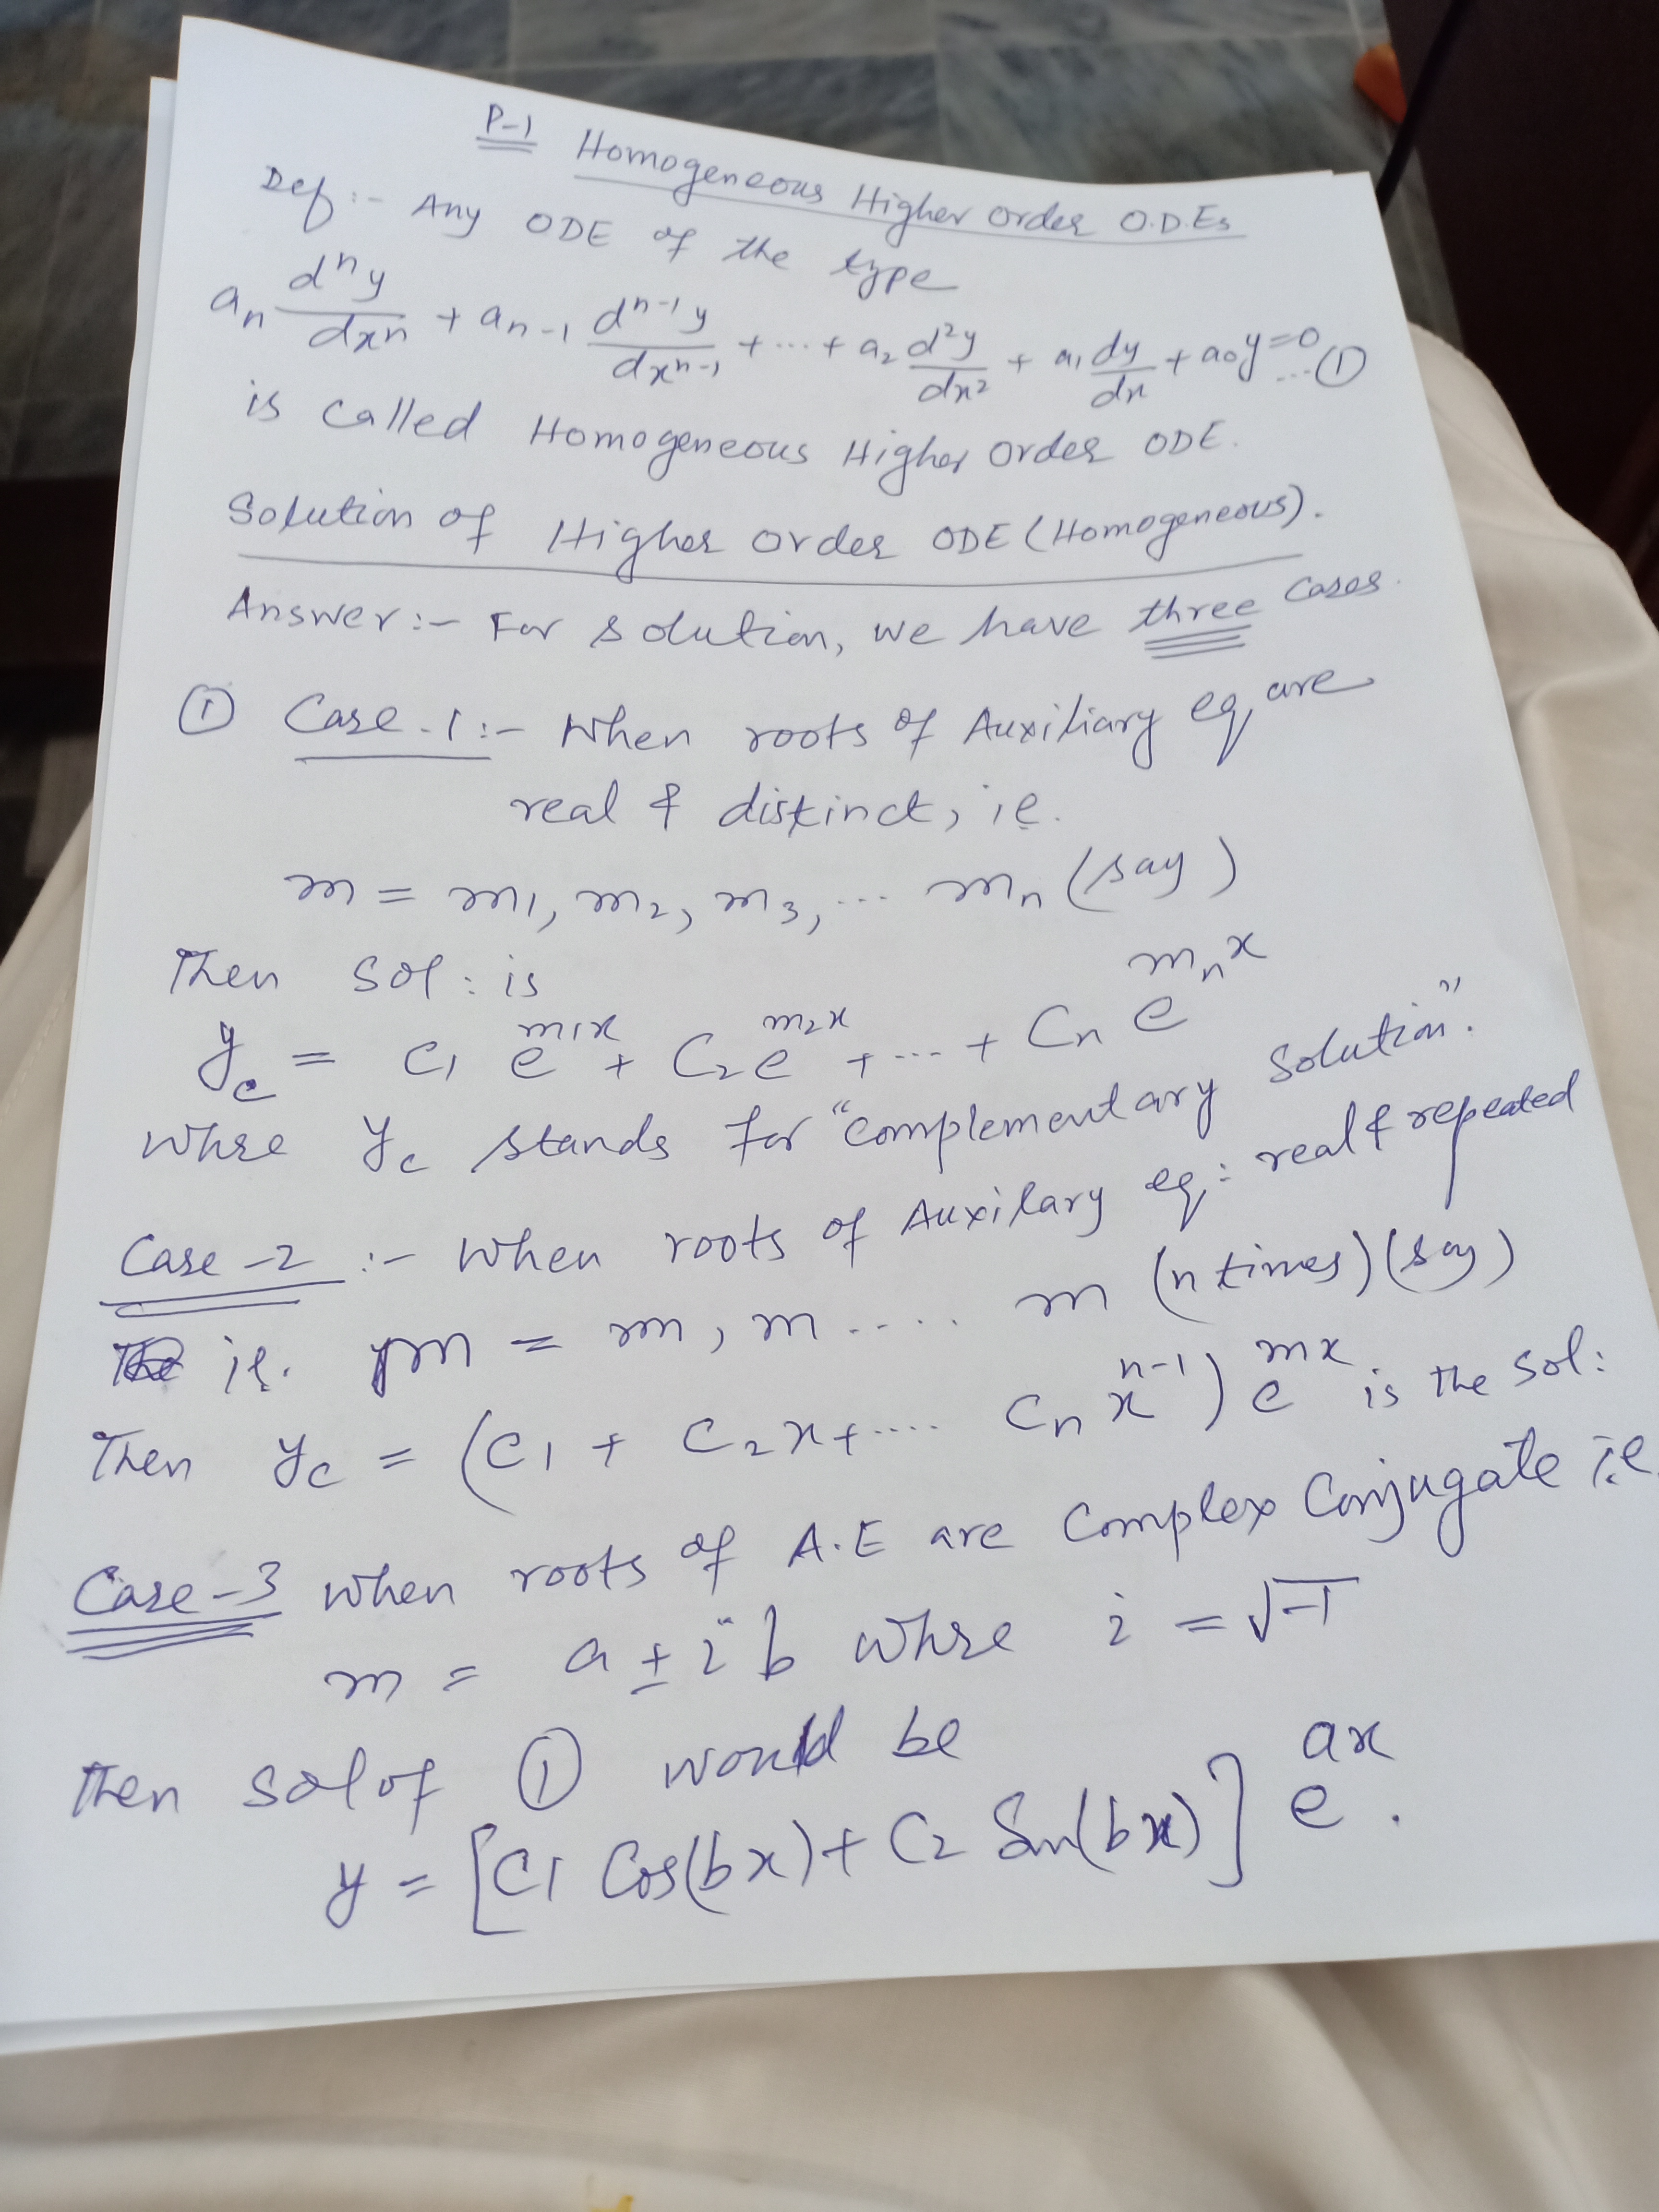 P-1 Homogeneous Higher order O.D.Es
Def:- Any ODE of the type
aₙ dⁿy/dxⁿ + aₙ₋₁ dⁿ⁻¹y/dxⁿ⁻¹ + ... + a₂ d²y/dx² + a₁ dy/dx + a₀y = 0 ... ①
is called Homogeneous Higher Order ODE.
Solution of Higher Order ODE (Homogeneous).
Answer:- For solution, we have three cases.
① Case-1:- When roots of Auxiliary eq. are
real & distinct, i.e.
m = m₁, m₂, m₃, ... mₙ (say)
Then sol: is
y_c = c₁ e^{m₁x} + c₂ e^{m₂x} + ... + cₙ e^{mₙx}
Whse y_c stands for "Complementary Solution".
Case-2:- When roots of Auxilary eq: real & repeated
ie. m = m, m .... m (n times) (say)
Then y_c = (c₁ + c₂x + .... cₙ xⁿ⁻¹) e^{mx} is the sol:
Case-3 When roots of A.E are Complex Conjugate i.e
m = a ± i b Whse i = √-1
Then sol of ① would be
y = [c₁ Cos(bx) + c₂ Sin(bx)] e^{ax}.